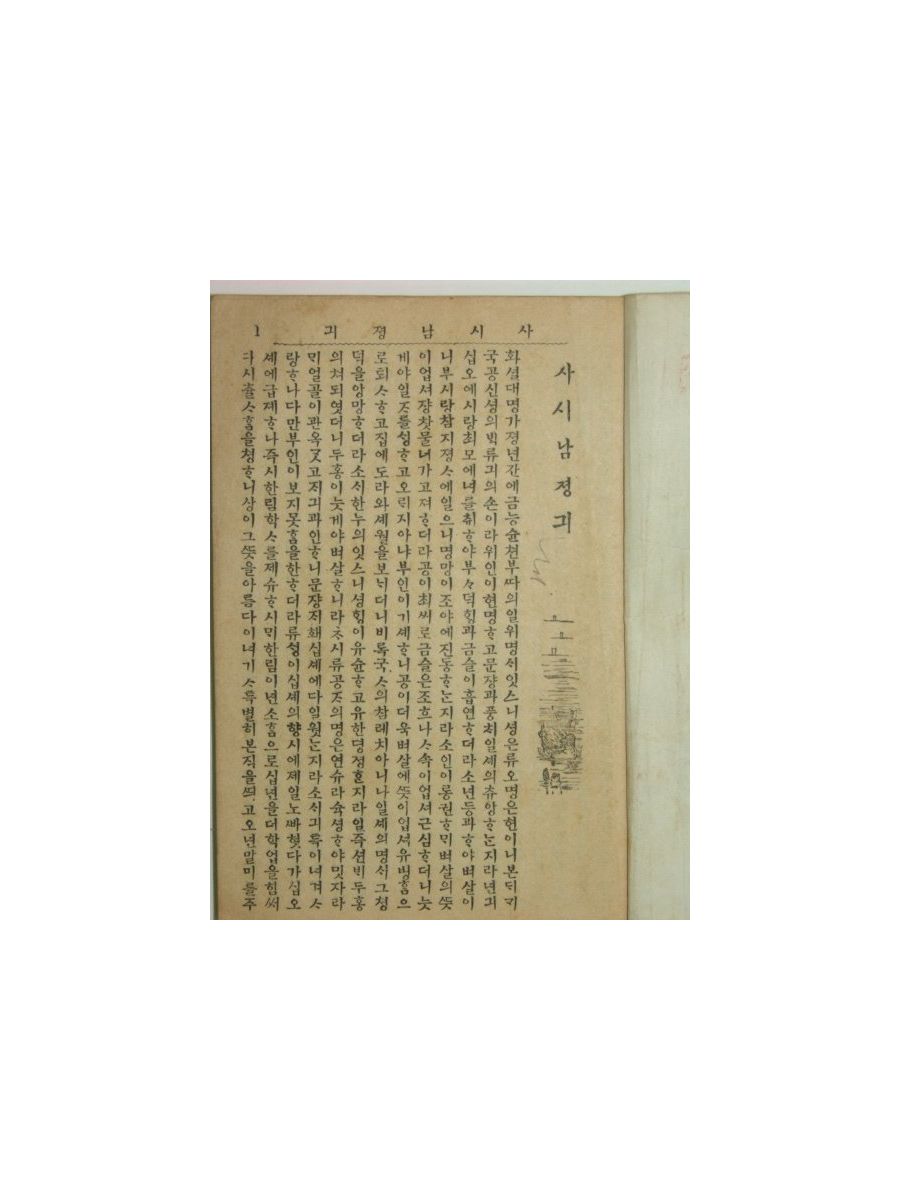 사시남졍긔 1
사시남졍긔
화셜대명가졍년간에금능슌쳔부ᄯᅡ의일위명ᄉᆡ잇스니셩은류오명은현이니본ᄃᆡᄀᆡ
국공신셩의ᄇᆡᆨ류긔의손이라위인이현명ᄒᆞ고문쟝과풍ᄎᆡ일셰의츄앙ᄒᆞᄂᆞᆫ지라년긔
십오에시랑최모에녀를ᄎᆔᄒᆞ야부々덕ᄒᆡᆼ과금슬이흡연ᄒᆞ더라소년등과ᄒᆞ야벼살이
니부시랑참지졍ᄉᆞ에일으니명망이조야에진동ᄒᆞᄂᆞᆫ지라소인이롱권ᄒᆞᄆᆡ벼살의ᄯᅳᆺ
이업셔쟝찻물너가고져ᄒᆞ더라공이최씨로금슬은조흐나ᄉᆞ속이업셔근심ᄒᆞ더니늣
게야일ᄌᆞ를ᄉᆡᆼᄒᆞ고오ᄅᆡ지아냐부인이기셰ᄒᆞ니공이더욱벼살에ᄯᅳᆺ이업셔유병ᄒᆞᆷ으
로퇴ᄉᆞᄒᆞ고집에도라와셰월을보ᄂᆡ더니비록국ᄉᆞ의참례치아니나일셰의명ᄉᆡ그쳥
덕을앙망ᄒᆞ더라소ᄉᆡ한누의잇스니셩ᄒᆡᆼ이유슌ᄒᆞ고유한뎡졍ᄒᆞᆫ지라일즉션ᄇᆡ두홍
의쳐되엿더니두홍이늣게야벼살ᄒᆞ니라ᄎᆞ시류공ᄌᆞ의명은연슈라슉셩ᄒᆞ야밋자라
ᄆᆡ얼골이관옥ᄀᆞᆺ고ᄌᆡ긔과인ᄒᆞ니문쟝ᄌᆡ홰십셰에다일웟ᄂᆞᆫ지라소ᄉᆡ긔특이녀겨ᄉᆞ
랑ᄒᆞ나다만부인이보지못ᄒᆞᆷ을한ᄒᆞ더라류ᄉᆡᆼ이십셰의향시에졔일노ᄲᅢ혓다가십오
셰에급졔ᄒᆞ나즉시한림학ᄉᆞ를졔슈ᄒᆞ시ᄆᆡ한림이년소ᄒᆞᆷ으로십년을더학업을힘써
다시츌ᄉᆞᄒᆞᆷ을쳥ᄒᆞ니상이그ᄯᅳᆺ을아름다이녀기ᄉᆞ특별히본직을ᄯᅴ고오년말미를주